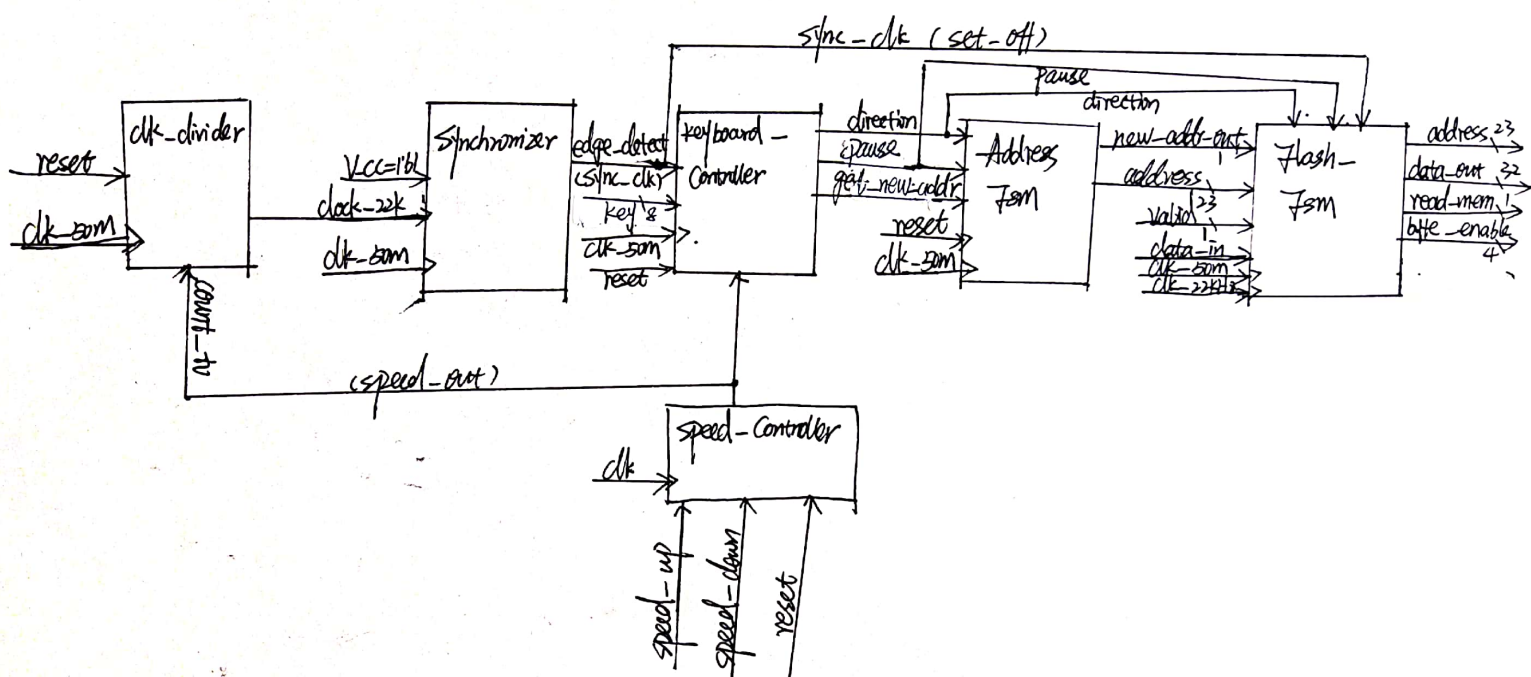 sync_clk (set-off)
pause
direction
clk_divider
reset
clk_50m
count_to
Synchronizer
VCC=1'b1
clock_22k
clk_50m
edge_detect
(sync_clk)
key 8
clk_50m
reset
keyboard_
Controller
direction
pause
get_new_addr
reset
clk_50m
Address
Fsm
new-addr-out
1
address
23
valid
1
data_in
clk_50m
clk_22kHz
Flash_
Fsm
address 23
data_out 32
read_mem 1
byte_enable
4
(speed_out)
speed_Controller
clk
speed_up
speed_down
reset